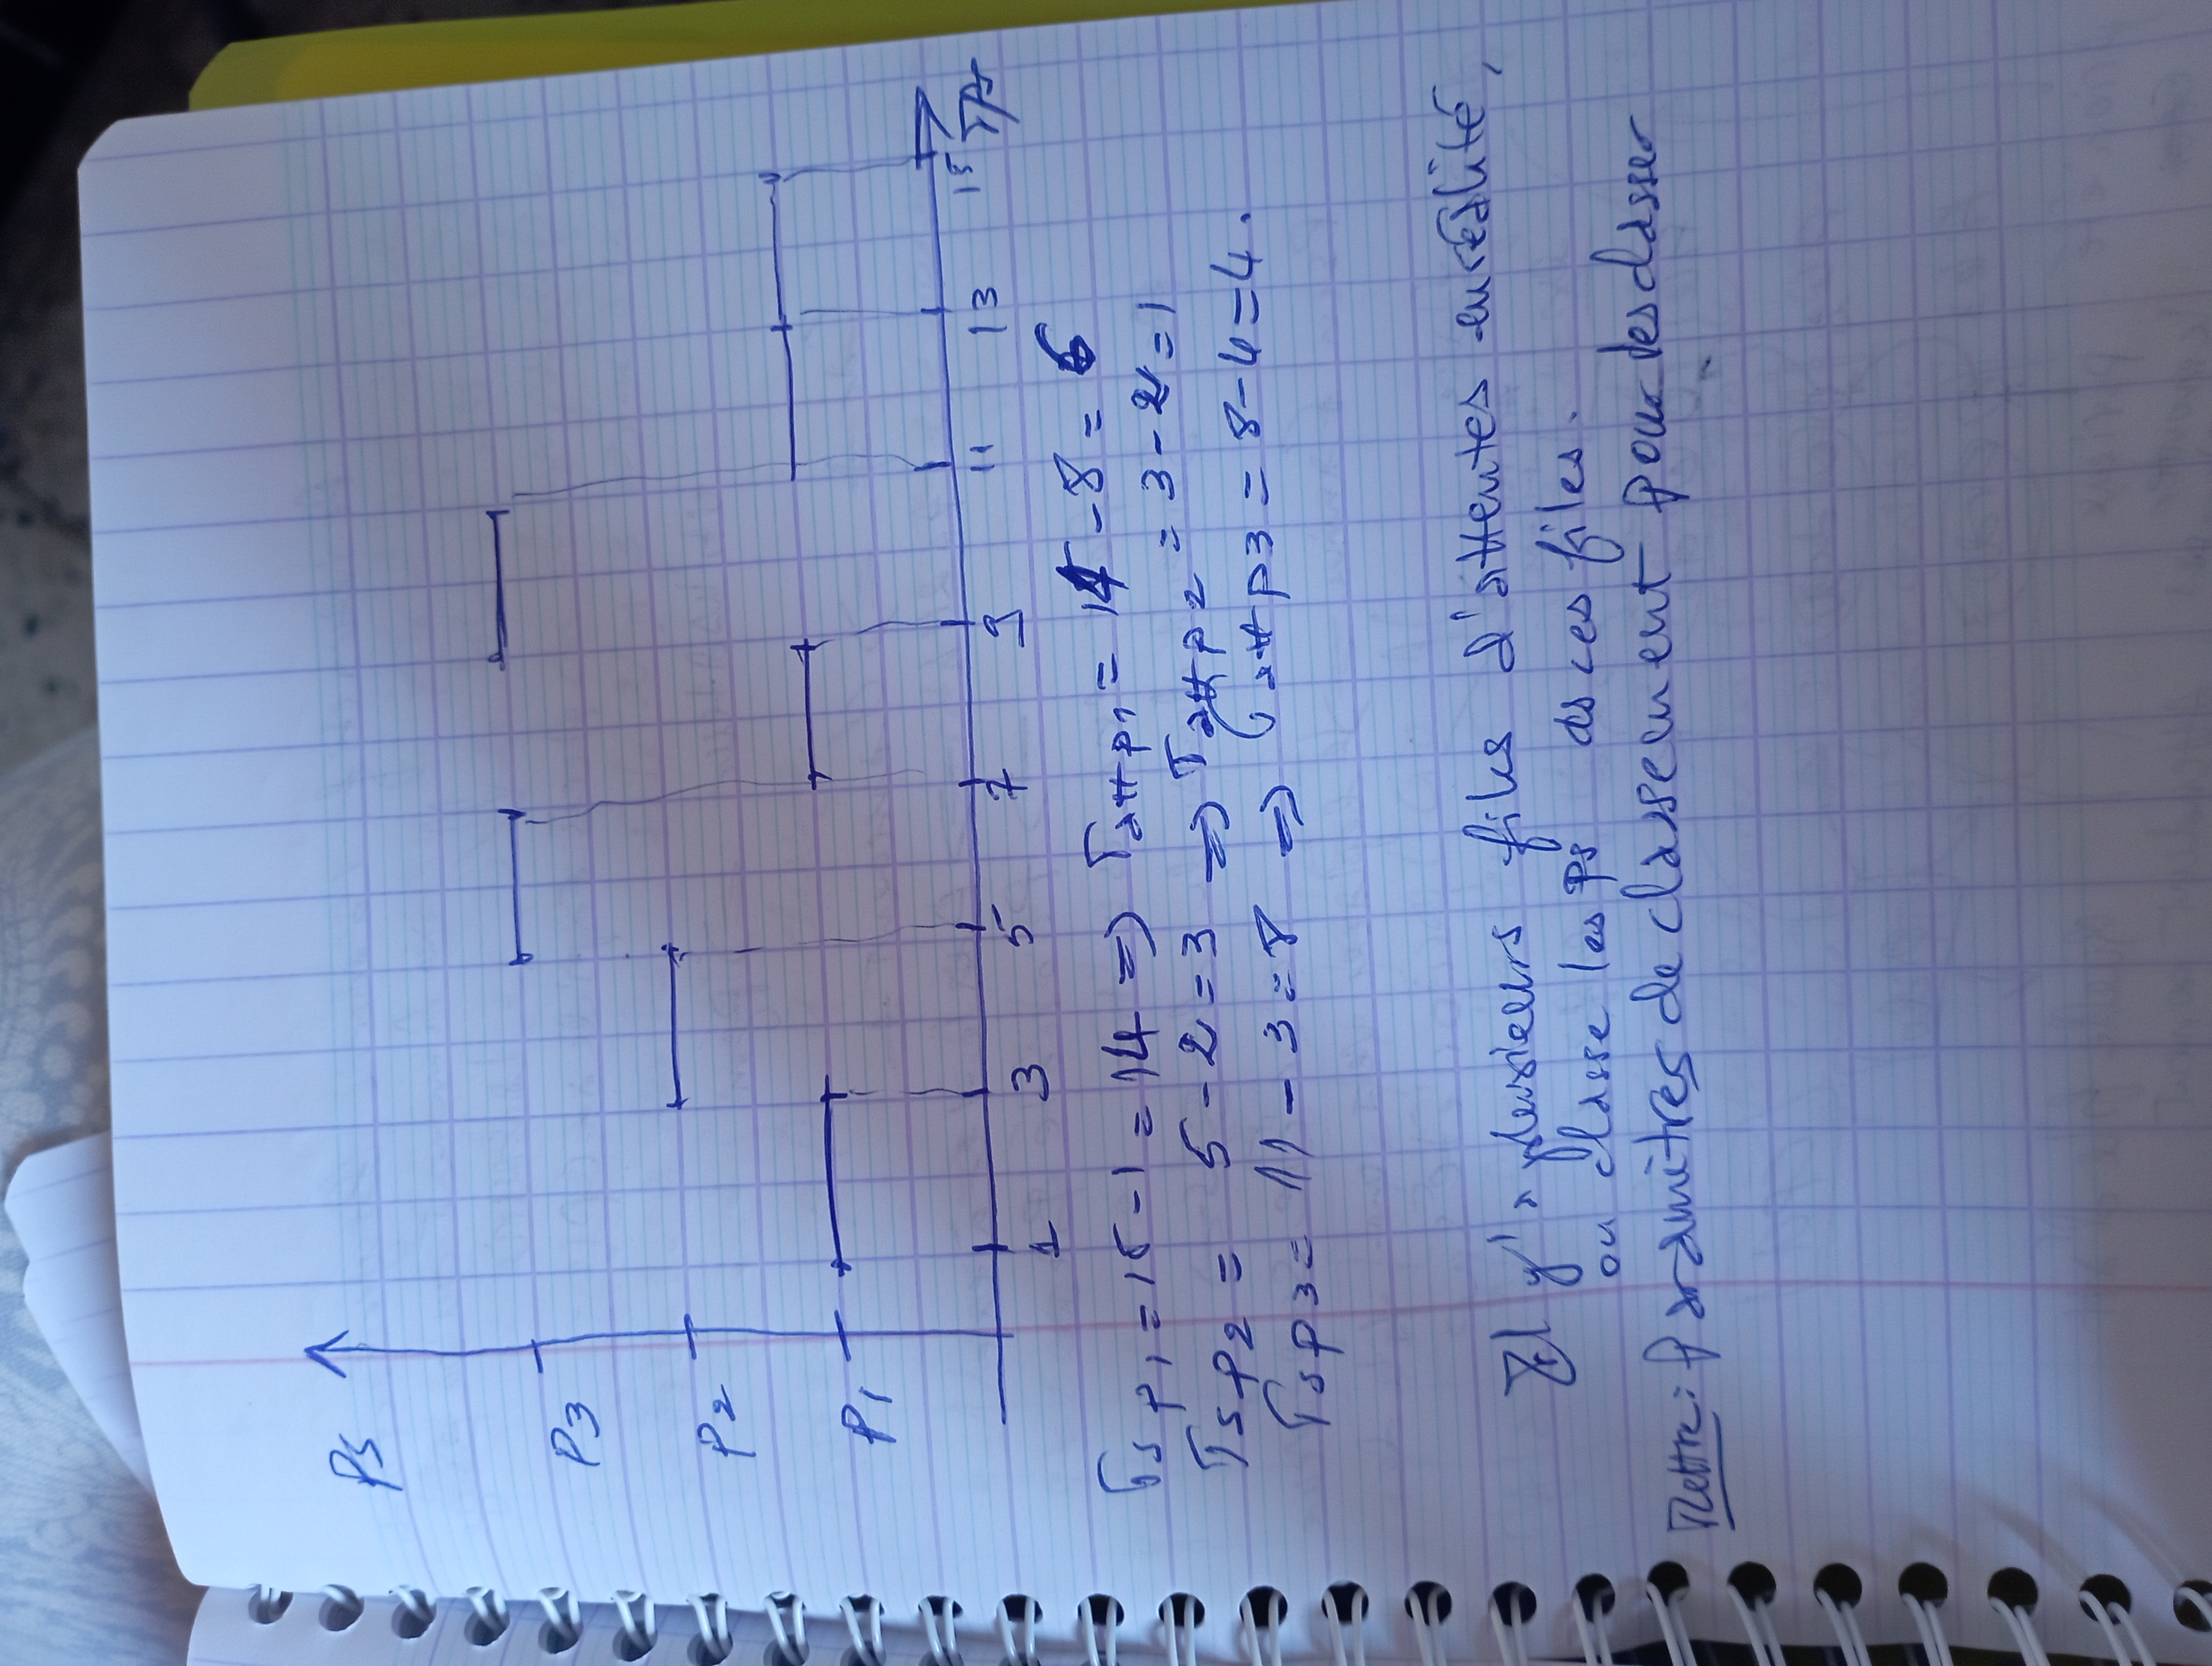 Ps
P3
P2
P1
1 3 5 7 9 11 13 15 T/t
Ts P1 = 15 - 1 = 14 => Tatt P1 = 14 - 8 = 6
Ts P2 = 5 - 2 = 3 => Tatt P2 = 3 - 2 = 1
Ts P3 = 11 - 3 = 8 => Tatt P3 = 8 - 4 = 4.
Il y'a plusieurs files d'attentes en réalité,
on classe les Ps ds ces files.
Mettre: Paramètres de classement pour les classer